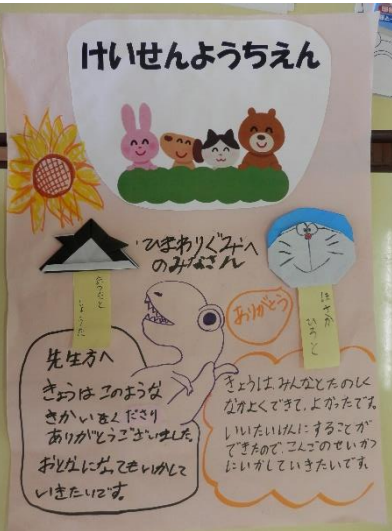 けいせんようちえん
ひまわりぐみへ
のみなさん
ありがとう
先生方へ
きょうはこのような
きかいをくださり
ありがとうございました。
おとなになってもいかして
いきたいです。
きょうは、みんなとたのしく
なかよくできて、よかったです。
いいたいけんにすることが
できたので、こんごのせいかつ
にいかしていきたいです。